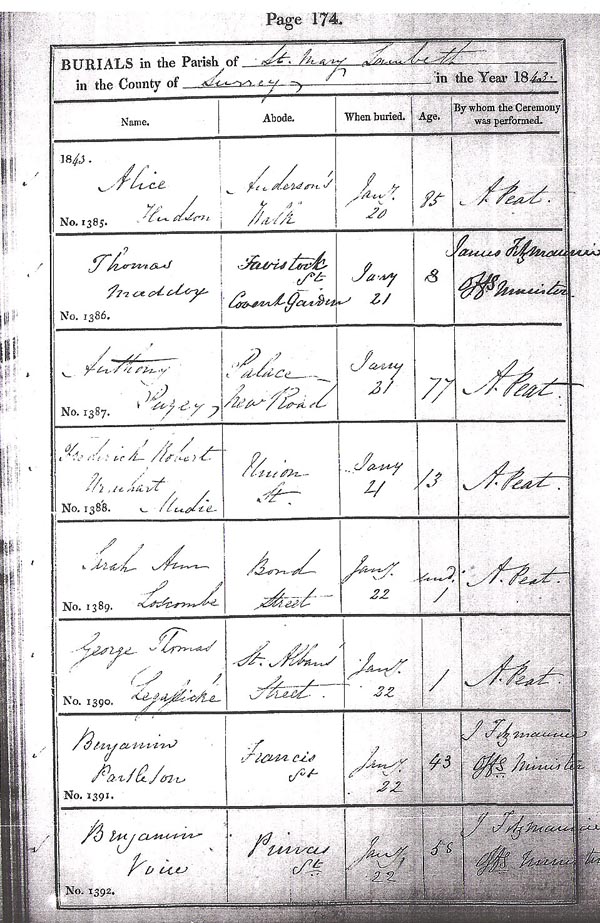 Page 174.
BURIALS in the Parish of St. Mary Lambeth
in the County of Surrey in the Year 1843.
Name. Abode. When buried. Age. By whom the Ceremony was performed.
1843.
Alice Hudson Anderson's Walk Jany. 20 85 A. Peat.
No. 1385.
Thomas Maddox Tavistock St Covent Garden Jany 21 8 James Fitzmaurice Offg Minister.
No. 1386.
Anthony Puzey, Palace New Road Jany 21 77 A. Peat.
No. 1387.
Frederick Robert Urquhart Mudie Union St. Jany 21 13 A. Peat.
No. 1388.
Sarah Ann Loscombe Bond Street Jany. 22 und. 1 A. Peat.
No. 1389.
George Thomas St. Albans' Street. Jany. 22 1 A. Peat.
No. 1390.
Benjamin Parlleson Francis St Jany. 22 43 J Fitzmaurice Offg Minister
No. 1391.
Benjamin Voice Princes St Jany. 22 58 J Fitzmaurice Offg Minister
No. 1392.